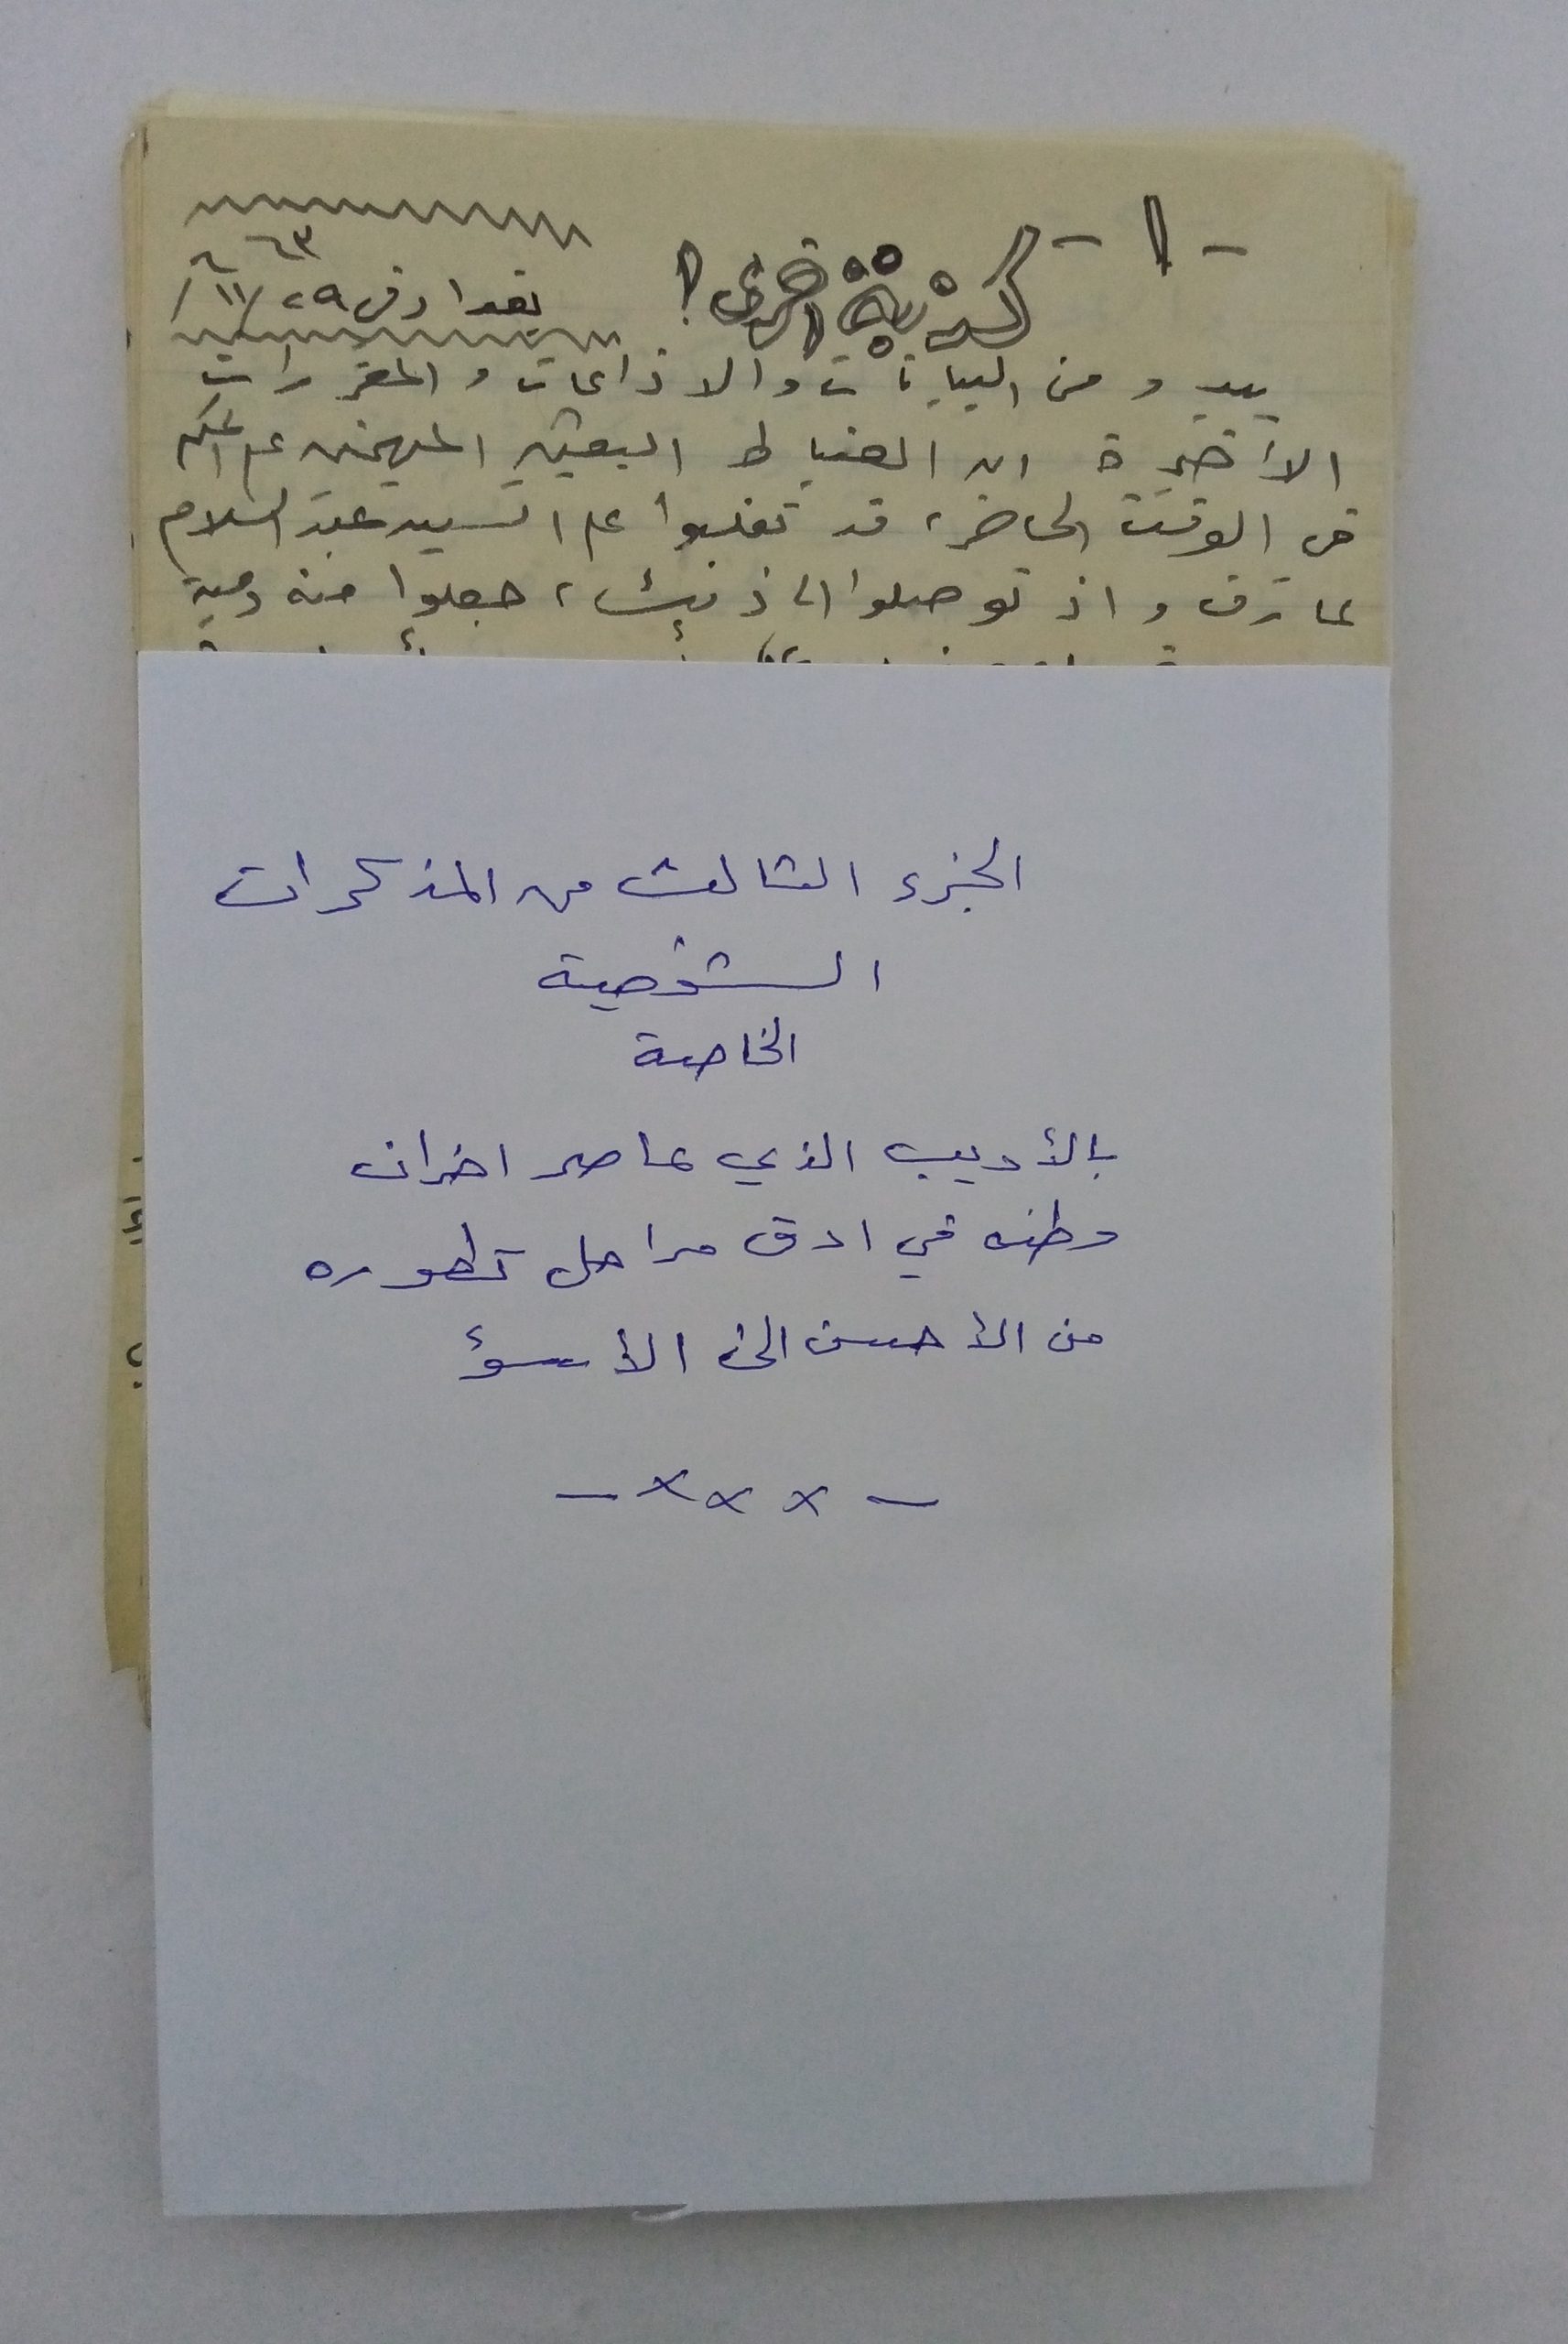 - ١ - كذبة اخرى!
بغداد في ٢٩/١١/٦٣
يبدو من البيانات والاذاعات والمقررات
الأخيرة ان الضباط البعثيين المهيمنين على الحكم
في الوقت الحاضر، قد تغلبوا على السيد عبد السلام
عارف واذ توصلوا الى ذلك، جعلوا منه دمية
الجزء الثالث من المذكرات
الشخصية
الخاصة
بالأديب الذي عاصر احزان
وطنه في ادق مراحل تطوره
من الأحسن الى الأسوؤ
- x x x -